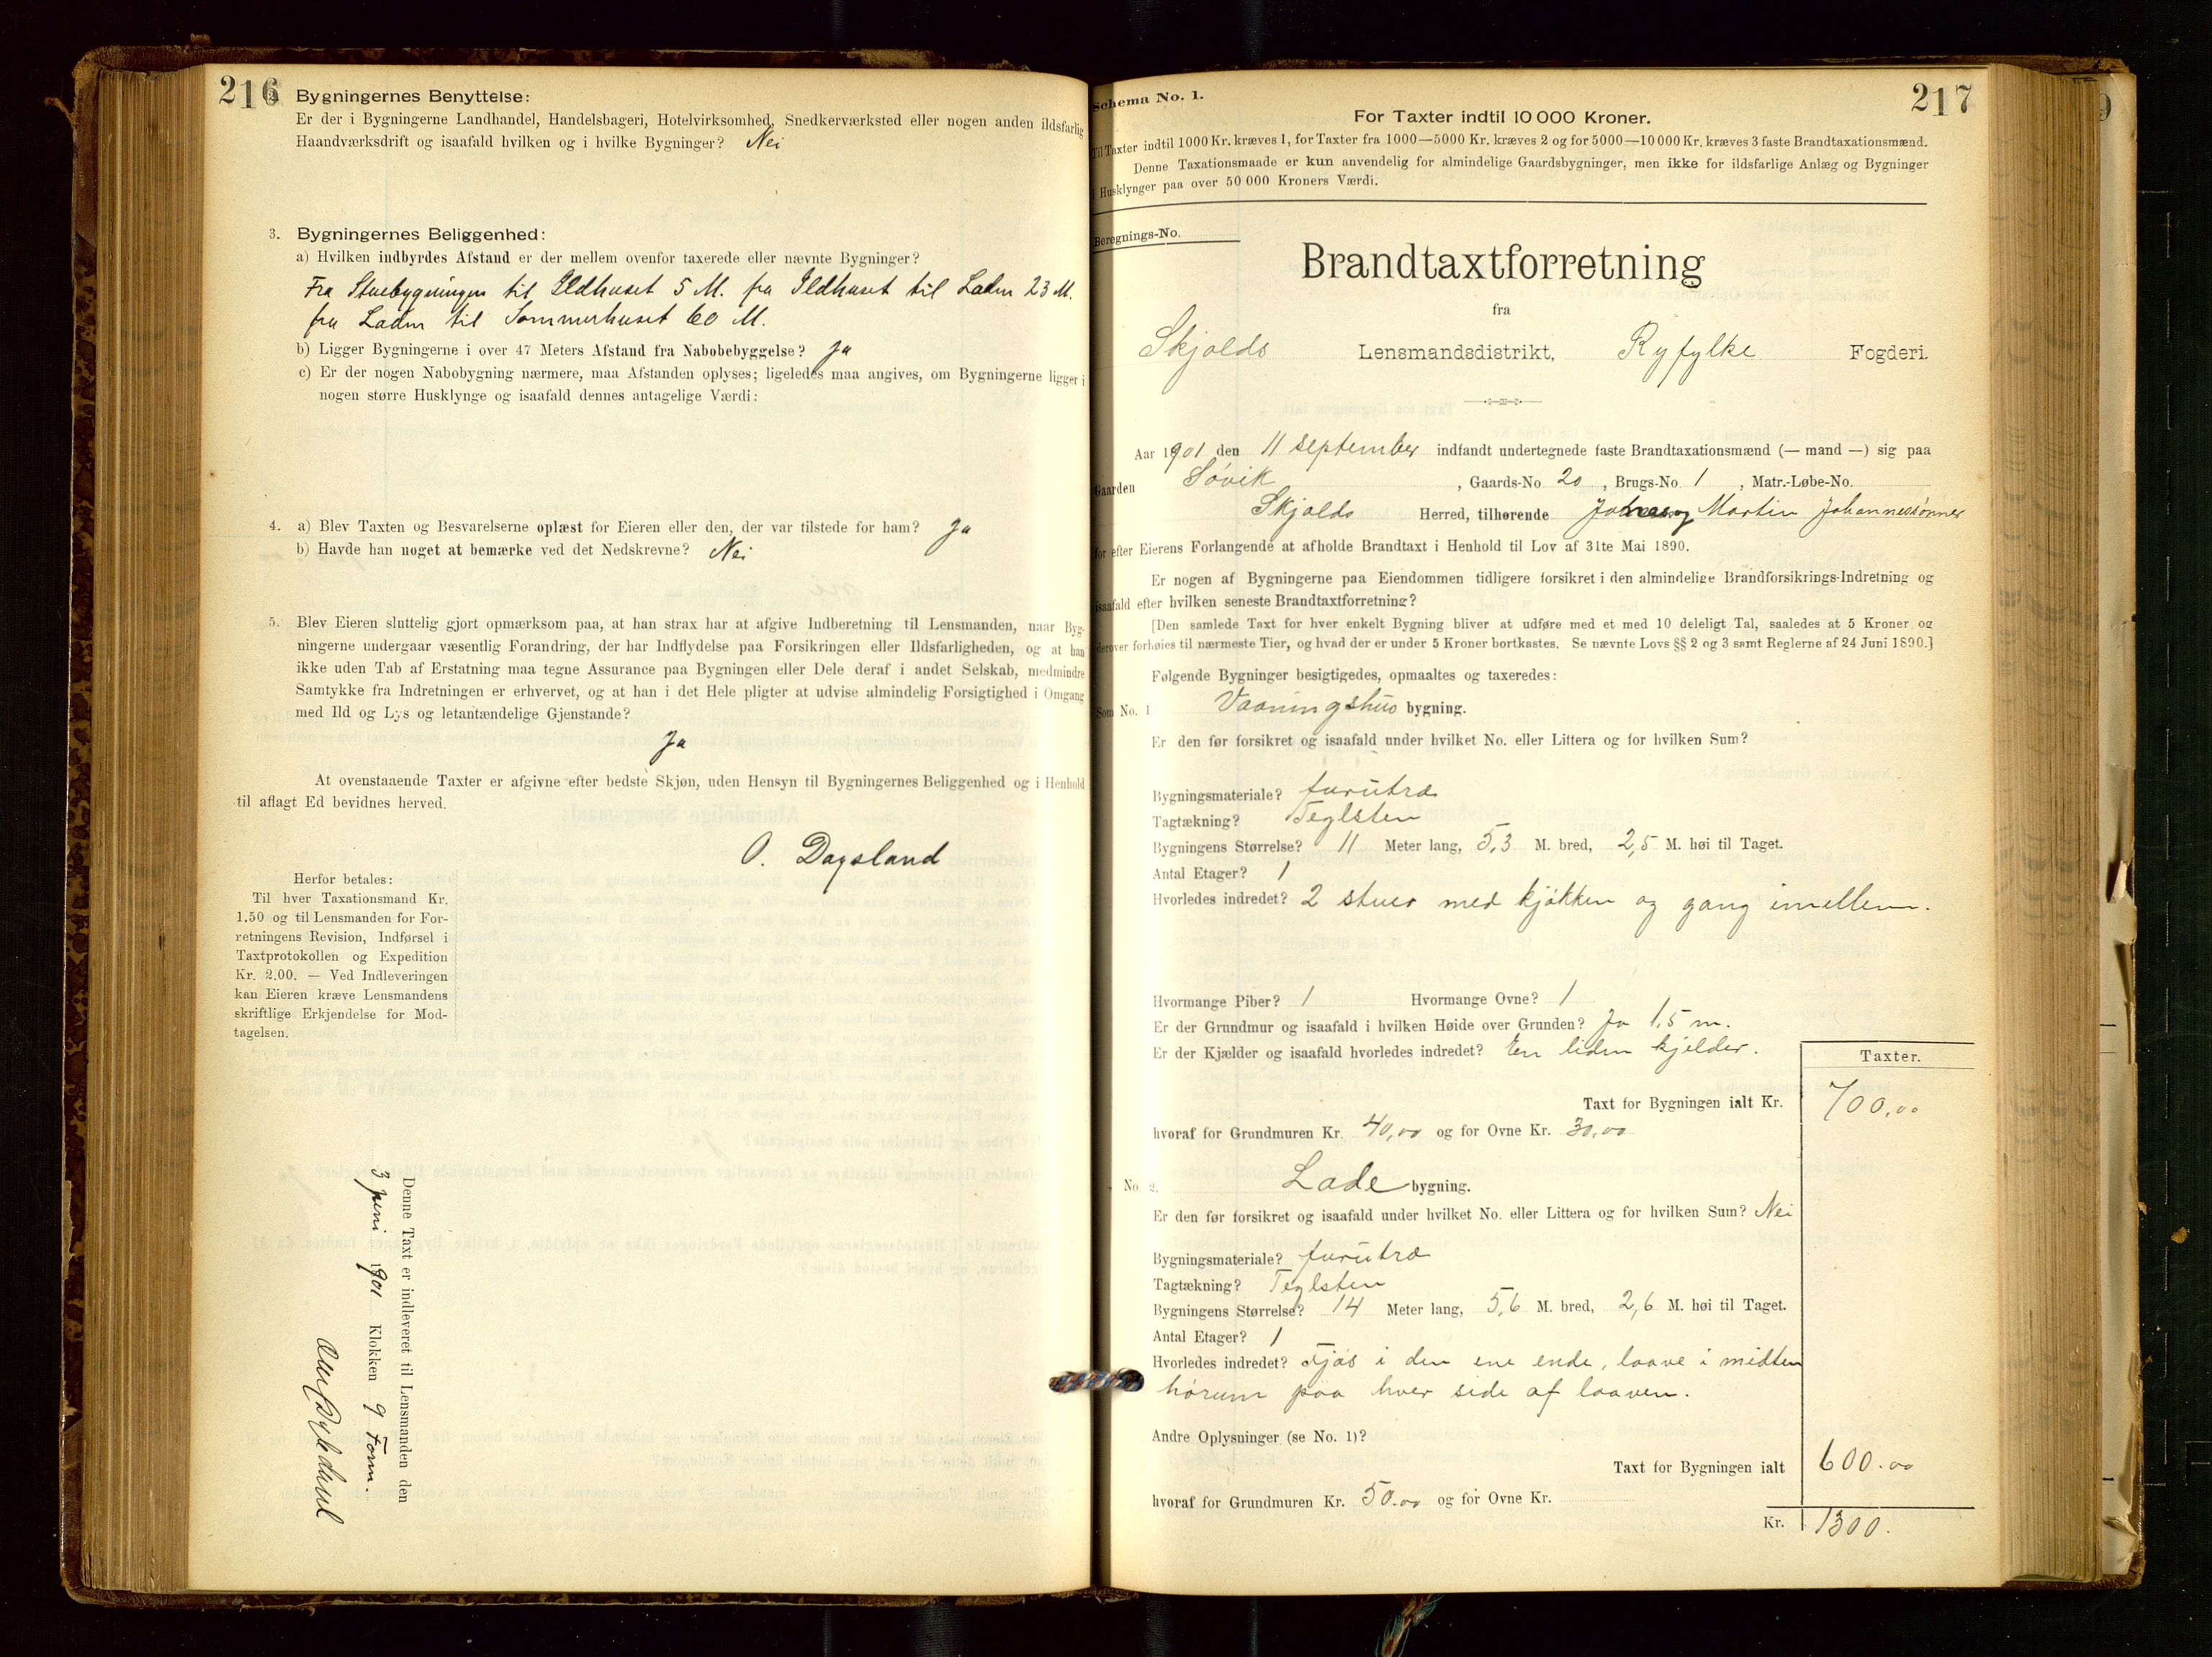 216
Bygningernes Benyttelse:
Er der i Bygningerne Landhandel, Handelsbageri, Hotelvirksomhed, Snedkerværksted eller nogen anden ildsfarlig
Haandværksdrift og isaafald hvilken og i hvilke Bygninger? Nei
3. Bygningernes Beliggenhed:
a) Hvilken indbyrdes Afstand er der mellem ovenfor taxerede eller nævnte Bygninger?
Fra Stuebygningen til Ildhuset 5 M. fra Ildhuset til Laden 23 M.
fra Laden til Sommerhuset 60 M.
b) Ligger Bygningerne i over 47 Meters Afstand fra Nabobebyggelse? Ja
c) Er der nogen Nabobygning nærmere, maa Afstanden oplyses; ligeledes maa angives, om Bygningerne ligger i
nogen større Husklynge og isaafald dennes antagelige Værdi:
4. a) Blev Taxten og Besvarelserne oplæst for Eieren eller den, der var tilstede for ham? Ja
b) Havde han noget at bemærke ved det Nedskrevne? Nei
5. Blev Eieren sluttelig gjort opmærksom paa, at han strax har at afgive Indberetning til Lensmanden, naar Byg-
ningerne undergaar væsentlig Forandring, der har Indflydelse paa Forsikringen eller Ildsfarligheden, og at han
ikke uden Tab af Erstatning maa tegne Assurance paa Bygningen eller Dele deraf i andet Selskab, medmindre
Samtykke fra Indretningen er erhvervet, og at han i det Hele pligter at udvise almindelig Forsigtighed i Omgang
med Ild og Lys og letantændelige Gjenstande?
Ja
At ovenstaaende Taxter er afgivne efter bedste Skjøn, uden Hensyn til Bygningernes Beliggenhed og i Henhold
til aflagt Ed bevidnes herved.
O. Dagsland
Herfor betales:
Til hver Taxationsmand Kr.
1.50 og til Lensmanden for For-
retningens Revision, Indførsel i
Taxtprotokollen og Expedition
Kr. 2.00. — Ved Indleveringen
kan Eieren kræve Lensmandens
skriftlige Erkjendelse for Mod-
tagelsen.
Denne Taxt er indleveret til Lensmanden den
3 juni 1901 Klokken 9 Form.
217
Schema No. 1.
For Taxter indtil 10 000 Kroner.
Til Taxter indtil 1000 Kr. kræves 1, for Taxter fra 1000—5000 Kr. kræves 2 og for 5000—10 000 Kr. kræves 3 faste Brandtaxationsmænd.
Denne Taxationsmaade er kun anvendelig for almindelige Gaardsbygninger, men ikke for ildsfarlige Anlæg og Bygninger
i Husklynger paa over 50 000 Kroners Værdi.
Beregnings-No.
Brandtaxtforretning
fra
Skjolds Lensmandsdistrikt, Ryfylke Fogderi.
Aar 1901 den 11 september indfandt undertegnede faste Brandtaxationsmænd (— mand —) sig paa
Gaarden Søvik, Gaards-No. 20, Brugs-No. 1, Matr.-Løbe-No.
Skjolds Herred, tilhørende Martin Johannessønner
for efter Eierens Forlangende at afholde Brandtaxt i Henhold til Lov af 31te Mai 1890.
Er nogen af Bygningerne paa Eiendommen tidligere forsikret i den almindelige Brandforsikrings-Indretning og
isaafald efter hvilken seneste Brandtaxtforretning?
[Den samlede Taxt for hver enkelt Bygning bliver at udføre med et med 10 deleligt Tal, saaledes at 5 Kroner og
derover forhøies til nærmeste Tier, og hvad der er under 5 Kroner bortkastes. Se nævnte Lovs §§ 2 og 3 samt Reglerne af 24 Juni 1890.]
Følgende Bygninger besigtigedes, opmaaltes og taxeredes:
Som No. 1 Vaaningshus bygning.
Er den før forsikret og isaafald under hvilket No. eller Littera og for hvilken Sum?
Bygningsmateriale? furutræ
Tagtækning? Teglsten
Bygningens Størrelse? 11 Meter lang, 5,3 M. bred, 2,5 M. høi til Taget.
Antal Etager? 1
Hvorledes indredet? 2 stuer med kjøkken og gang imellem.
Hvormange Piber? 1 Hvormange Ovne? 1
Er der Grundmur og isaafald i hvilken Høide over Grunden? Ja 1,5 m.
Er der Kjælder og isaafald hvorledes indredet? En liden kjelder.
Taxter.
Taxt for Bygningen ialt Kr. 700,00
hvoraf for Grundmuren Kr. 40,00 og for Ovne Kr. 30,00
No. 2. Lade bygning.
Er den før forsikret og isaafald under hvilket No. eller Littera og for hvilken Sum? Nei
Bygningsmateriale? furutræ
Tagtækning? Teglsten
Bygningens Størrelse? 14 Meter lang, 5,6 M. bred, 2,6 M. høi til Taget.
Antal Etager? 1
Hvorledes indredet? Fjøs i den ene ende, laave i midten
hørum paa hver side af laaven.
Andre Oplysninger (se No. 1)?
Taxt for Bygningen ialt 600.00
hvoraf for Grundmuren Kr. 50.00 og for Ovne Kr.
Kr. 1300.